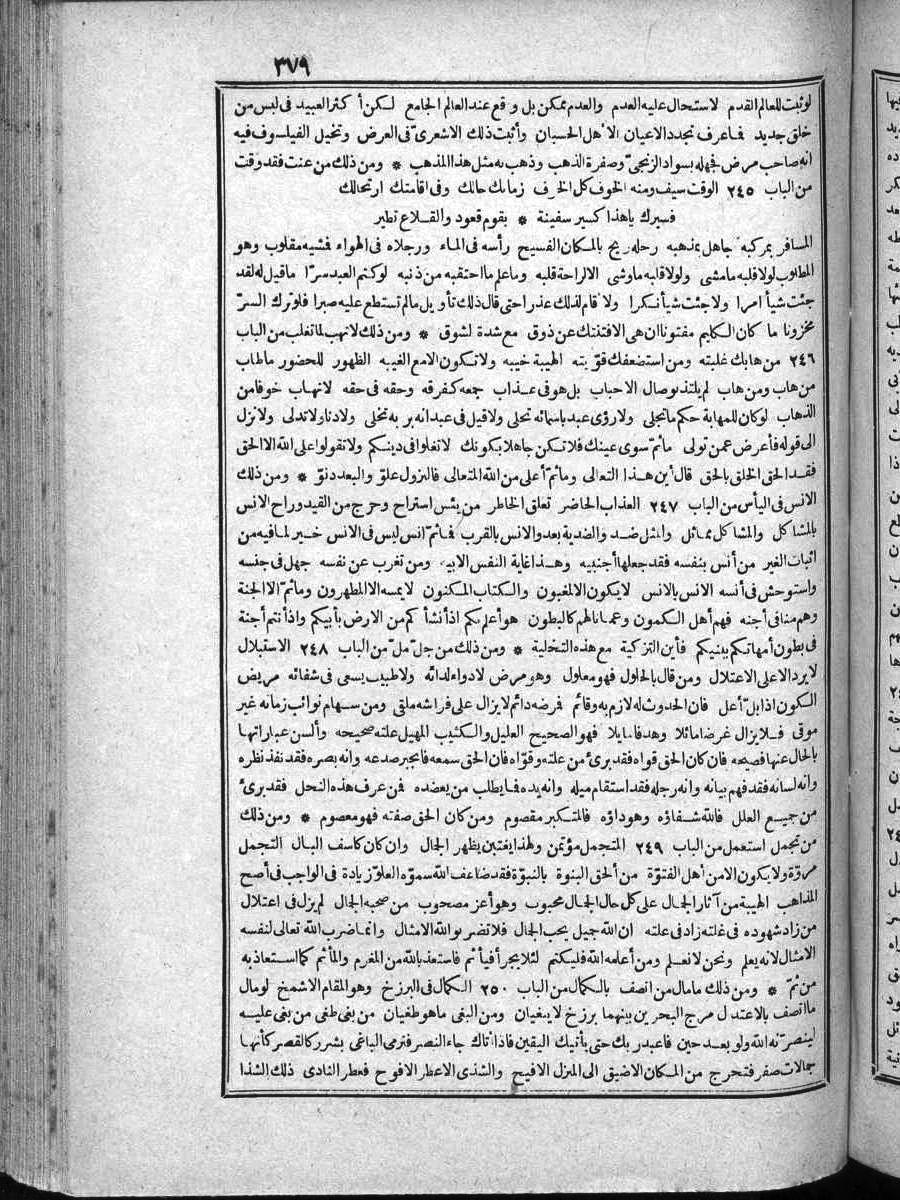 ٣٧٩
لو ثبت للعالم القدم لاستحال عليه العدم والعدم ممكن بل وقع عند العالم الجامع لكن أكثر العبيد في لبس من
خلق جديد فاعرف تجدد الاعيان الا أهل الحسبان وأثبت ذلك الاشعرى في العرض وتخيل الفيلسوف فيه
انه صاحب مرض فجهله بسواد الزنجى وصفرة الذهب وذهب به مثل هذا المذهب * ومن ذلك من عنت فقد وقت
من الباب ٢٤٥ الوقت سيف ومنه الخوف كل الخوف زمانك حالك وفى اقامتك ارتحالك
فسيرك ياهذا كسير سفينة * بقوم قعود والقلاع تطير
المسافر بمركبه جاهل بمذهبه رحله ريح بالمكان الفسيح رأسه فى الماء ورجلاه فى الهواء فشيه مقلوب وهو
المطلوب لولا قلبه مامشى ولولا قلبه ماوشى الالراحة قلبه وماعلم ما احتقبه من ذنبه لوكتم العبد سرا ماقيل له لقد
جئت شيأ امرا ولا جئت شيأ نكرا ولا قام لذلك عذرا حتى قال ذلك تأويل مالم تستطع عليه صبرا فلو ترك السر
مخزونا ما كان الكليم مفتونا ان هى الافتنتك عن ذوق مع شدة لشوق * ومن ذلك لا تهب لما تغلب من الباب
٢٤٦ من هابك غلبته ومن استضعفك قوّيته الهيبة خيبه ولا تكون الامع الغيبه الظهور للحضور مالهاب
من هاب ومن هاب لم يلتذ بوصال الاحباب بل هو فى عذاب جمعه كفرقه وحقه فى حقه لا تهاب خوفا من
الذهاب لو كان للمهابة حكم ماتجلى ولا رؤى عبد باسمائه تحلى ولا قيل فى عبد انه بر به تخلى ولا دنا ولا تدلى ولا نزل
الى قوله فأعرض عمن تولى ماثم سوى عينك فلا تكن جاهلا بكونك لا تغلوا فى دينكم ولا تقولوا على الله الا الحق
فقد الحق الخلق بالحق قال أين هذا التعالى وماثم أعلى من الله المتعالى فالنزول علوّ والبعد دنوّ * ومن ذلك
الانس فى اليأس من الباب ٢٤٧ العذاب الحاضر تعلق الخاطر من يئس استراح وخرج من القيد وراح الانس
بالمشاكل والمشاكل مماثل والمثل ضد والضدية بعد والانس بالقرب فماثم انس ليس فى الانس خير لما فيه من
اثبات الغير من أنس بنفسه فقد جعلها أجنبيه وهذا غاية النفس الابيه ومن تغرب عن نفسه جهل فى جنسه
واستوحش فى أنسه الانس بالانس لا يكون الالمغبون والكتاب المكنون لا يمسه الا المطهرون وماثم الا الجنة
وهم منا فى أجنه فهم أهل الكمون وعماناهم كالبطون هو أعلم بكم اذ أنشأكم من الارض بأبيكم واذ أنتم أجنة
فى بطون أمهاتكم ببنيكم فأين التزكية مع هذه التخلية * ومن ذلك من جلّ ملّ من الباب ٢٤٨ الاستبلال
لا يرد الاعلى الاعتلال ومن قال بالحلول فهو معلول وهو مرض لا دواء لدائه ولا طبيب يسعى فى شفائه مريض
الكون اذا بلّ أعل فان الحدوث له لازم به وقائم فرضه دائم لا يزال على فراشه ملقى ومن سهام نوائب زمانه غير
موقى فلا يزال غرضا مائلا وهدفا نابلا فهو الصحيح العليل والكثيب المهيل علته صحيحه وألسن عباراتها
بالحال عنها فصيحه فان كان الحق قواه فقد برئ من علته وقواه فان الحق سمعه فانجبر صدعه وانه بصره فقد نفذ نظره
وانه لسانه فقد فهم بيانه وانه رجله فقد استقام ميله وانه يده فما يطلب من يعضده فن عرف هذه النحل فقد برئ
من جميع العلل فالله شفاؤه وهو داؤه فالمتكبر مقصوم ومن كان الحق صفته فهو معصوم * ومن ذلك
من تجمل استعمل من الباب ٢٤٩ المتجمل مؤتمن ولهذا يفتتن يظهر الجال وان كان كاسف البال التجمل
مروّة ولا يكون الامن أهل الفتوّة من ألحق البنوة بالنبوّة فقد ضاعف الله سموّه العلوّ زيادة فى الواجب فى أصح
المذاهب الهيبة من آثار الجال على كل حال الجال محبوب وهو أعز مصحوب من صحبه الجال لم يزل فى اعتلال
من زاد شهوده فى غلته زاد فى علته ان الله جميل يحب الجال فلا تضربوا لله الامثال وانما ضرب الله تعالى لنفسه
الامثال لانه يعلم ونحن لا نعلم ومن أعلمه الله فليكتم لئلا يجرأ فيأثم فاستعذ بالله من المغرم والمأثم كما استعاذ به
من ثمّ * ومن ذلك مامال من اتصف بالكمال من الباب ٢٥٠ الكمال فى البرزخ وهو المقام الاشمخ لو مال
ما اتصف بالاعتدال مرج البحرين بينهما برزخ لا يبغيان ومن البغى ماهو طغيان من بغى طغى من بغى عليه
لينصرّنه الله ولو بعد حين فاعبد ربك حتى يأتيك اليقين فاذا أتاك جاء النصر فرمى الباغى بشرر كالقصر كأنها
جمالات صفر فتخرج من المكان الاضيق الى المنزل الافيح والشذى الاعطر الافوح فعطر النادى ذلك الشذا